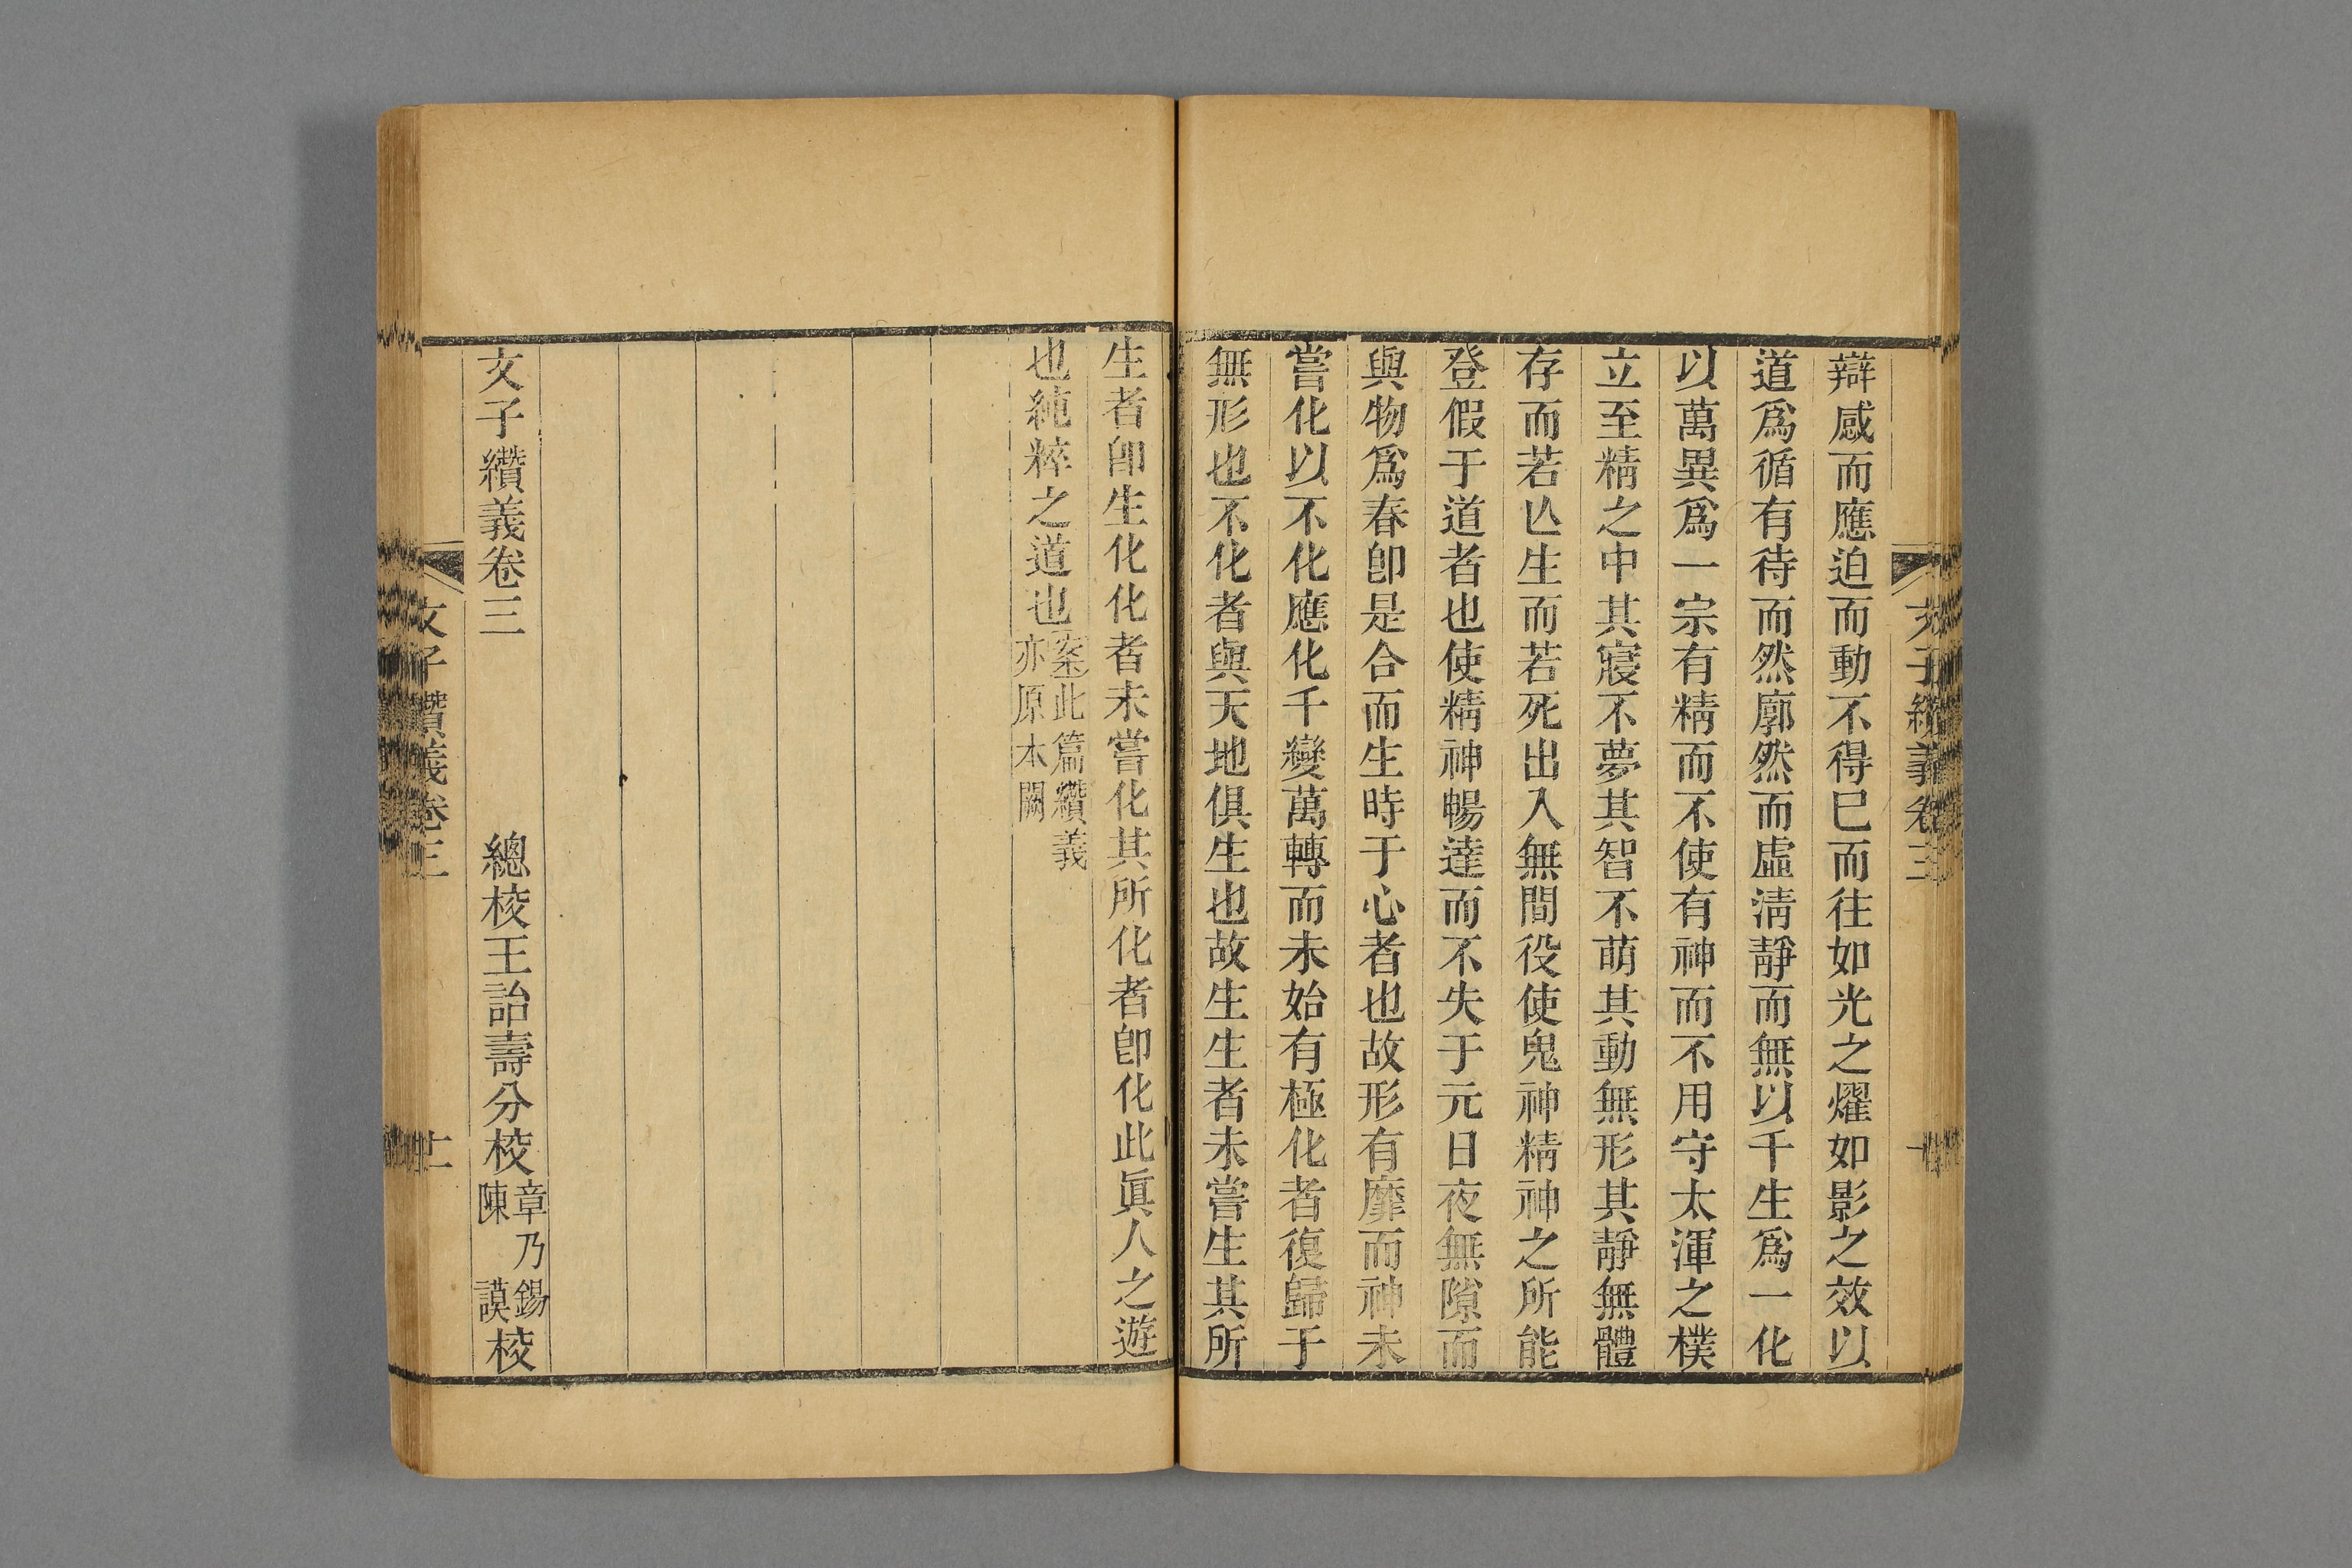 辯感而應迫而動不得已而往如光之燿如影之效以
道爲循有待而然廓然而虛淸靜而無以千生爲一化
以萬異爲一宗有精而不使有神而不用守太渾之樸
立至精之中其寢不夢其智不萌其動無形其靜無體
存而若亾生而若死出入無間役使鬼神精神之所能
登假于道者也使精神暢達而不失于元日夜無隙而
與物爲春卽是合而生時于心者也故形有靡而神未
嘗化以不化應化千變萬轉而未始有極化者復歸于
無形也不化者與天地俱生也故生生者未嘗生其所
生者卽生化化者未嘗化其所化者卽化此眞人之遊
也純粹之道也案此篇纘義
亦原本闕
文子纘義卷三
總校王詒壽分校章乃錫
陳謨校
文子纘義卷三